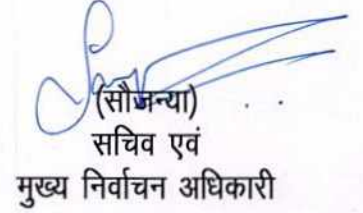 (सौजन्या)
सचिव एवं
मुख्य निर्वाचन अधिकारी